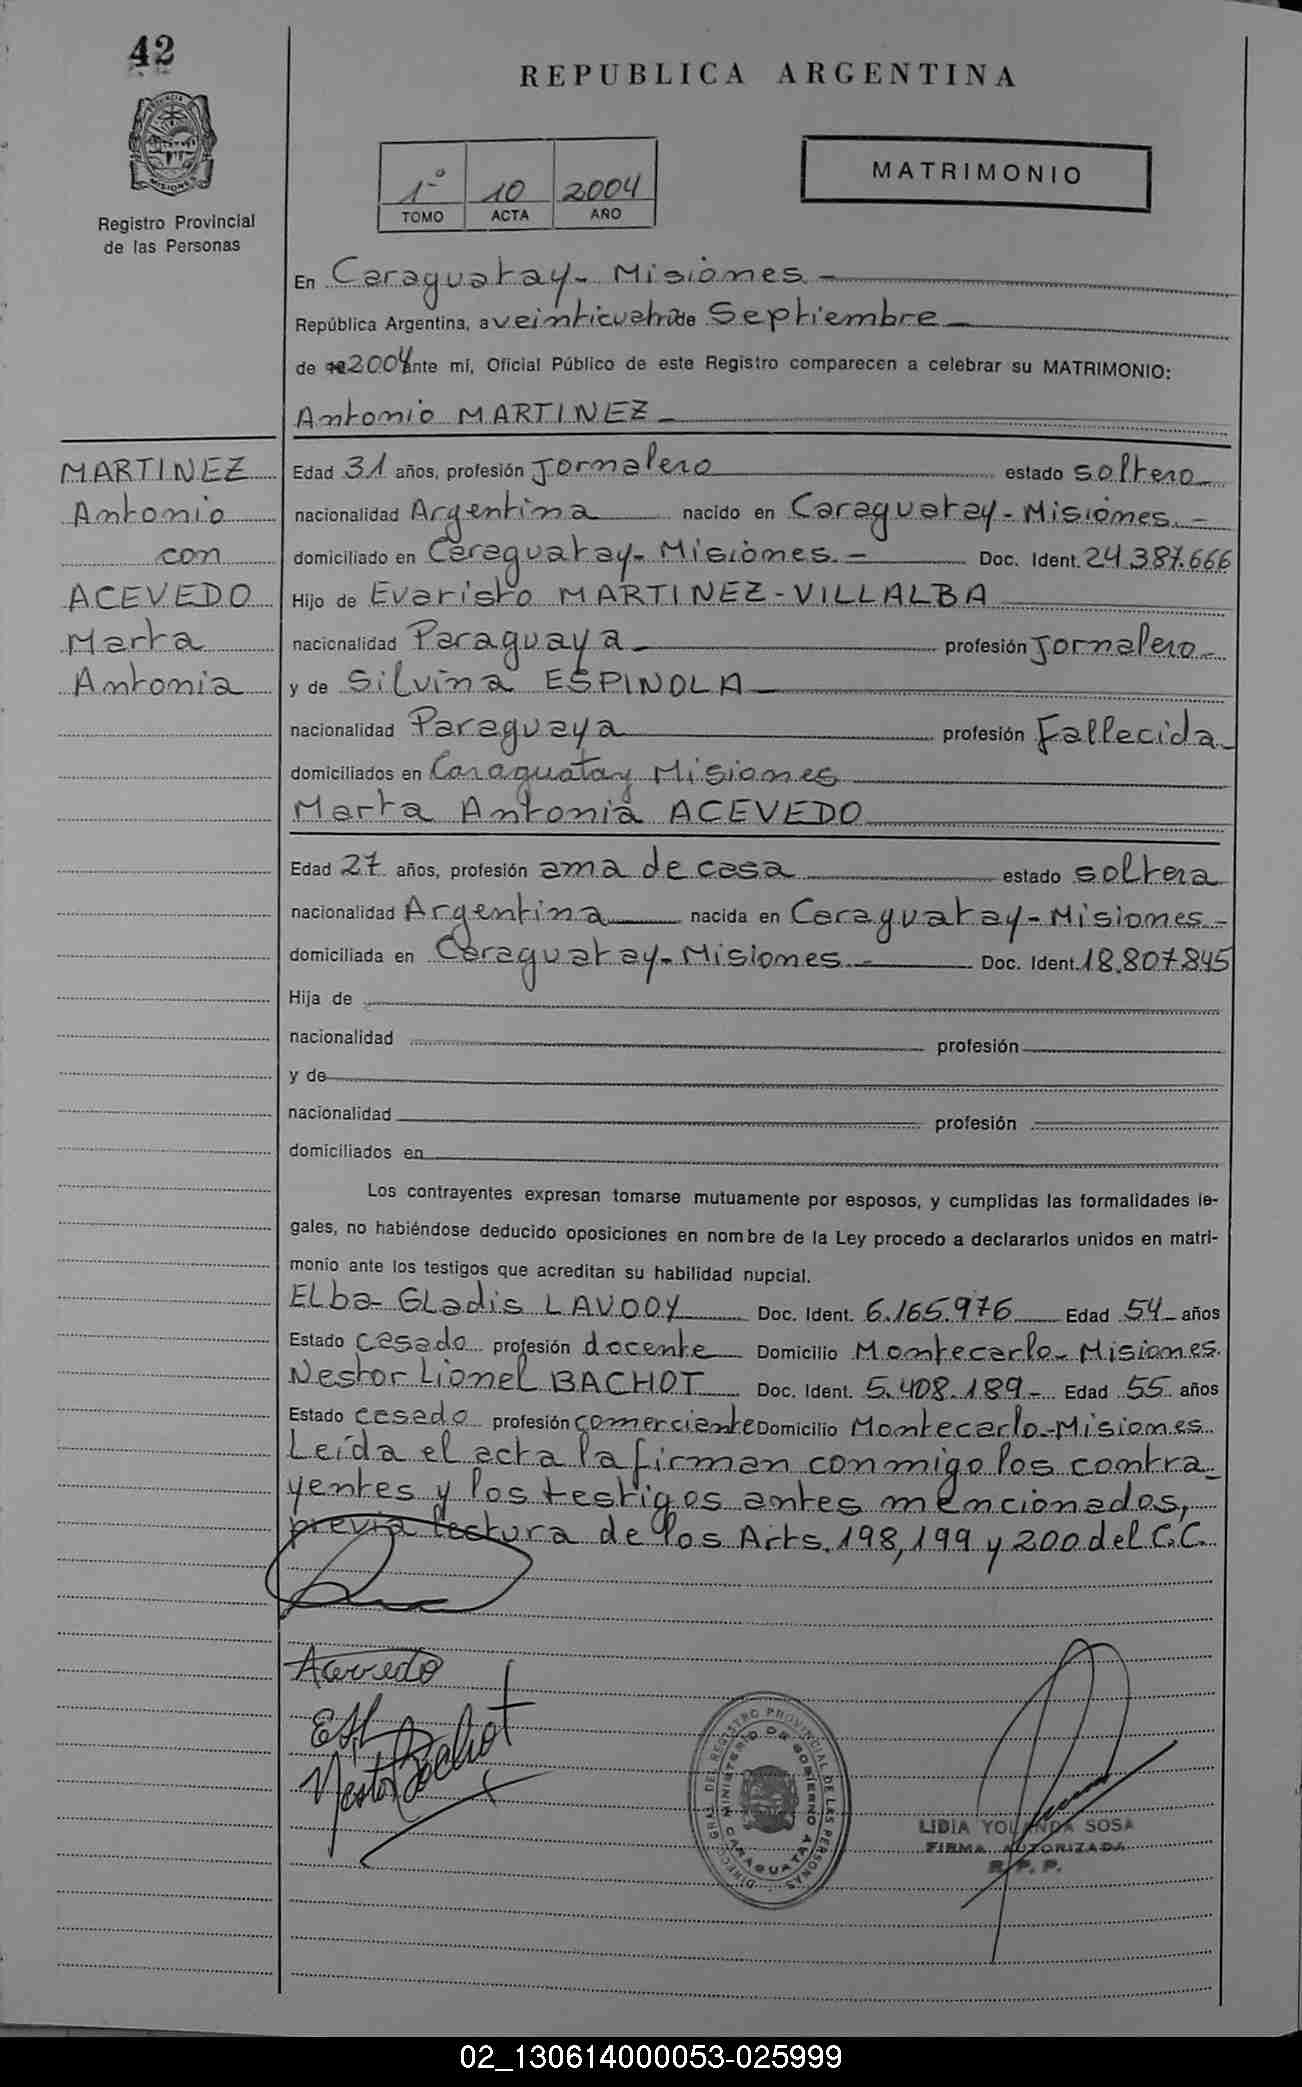 42
REPUBLICA ARGENTINA
MATRIMONIO
1º 10 2004
TOMO ACTA AÑO
Registro Provincial
de las Personas
En Caraguatay - Misiones -
República Argentina, a veinticuatro de Septiembre -
de 2004 ante mí, Oficial Público de este Registro comparecen a celebrar su MATRIMONIO:
Antonio MARTINEZ -
MARTINEZ
Antonio
con
ACEVEDO
Marta
Antonia
Edad 31 años, profesión Jornalero estado soltero
nacionalidad Argentina nacido en Caraguatay - Misiones. -
domiciliado en Caraguatay - Misiones. - Doc. Ident. 24.387.666
Hijo de Evaristo MARTINEZ - VILLALBA
nacionalidad Paraguaya - profesión Jornalero -
y de Silvina ESPINOLA -
nacionalidad Paraguaya profesión Fallecida -
domiciliados en Caraguatay Misiones
Marta Antonia ACEVEDO
Edad 27 años, profesión ama de casa estado soltera
nacionalidad Argentina nacida en Caraguatay - Misiones -
domiciliada en Caraguatay - Misiones - Doc. Ident. 18.807.845
Hija de
nacionalidad profesión
y de
nacionalidad profesión
domiciliados en
Los contrayentes expresan tomarse mutuamente por esposos, y cumplidas las formalidades le-
gales, no habiéndose deducido oposiciones en nombre de la Ley procedo a declararlos unidos en matri-
monio ante los testigos que acreditan su habilidad nupcial.
Elba Gladis LAVOOY Doc. Ident. 6.165.976 Edad 54 años
Estado casado profesión docente Domicilio Montecarlo - Misiones.
Nestor Lionel BACHOT Doc. Ident. 5.408.189 - Edad 55 años
Estado casado profesión comerciante Domicilio Montecarlo - Misiones.
Leída el acta la firman conmigo los contra-
yentes y los testigos antes mencionados,
previa lectura de los Arts. 198, 199 y 200 del C.C.
Acevedo
Nestor Bachot
DIREC. GRAL. DEL REGISTRO PROVINCIAL DE LAS PERSONAS
MINISTERIO DE GOBIERNO
CARAGUATAY
LIDIA YOLANDA SOSA
FIRMA AUTORIZADA
R. P. P.
02_130614000053-025999